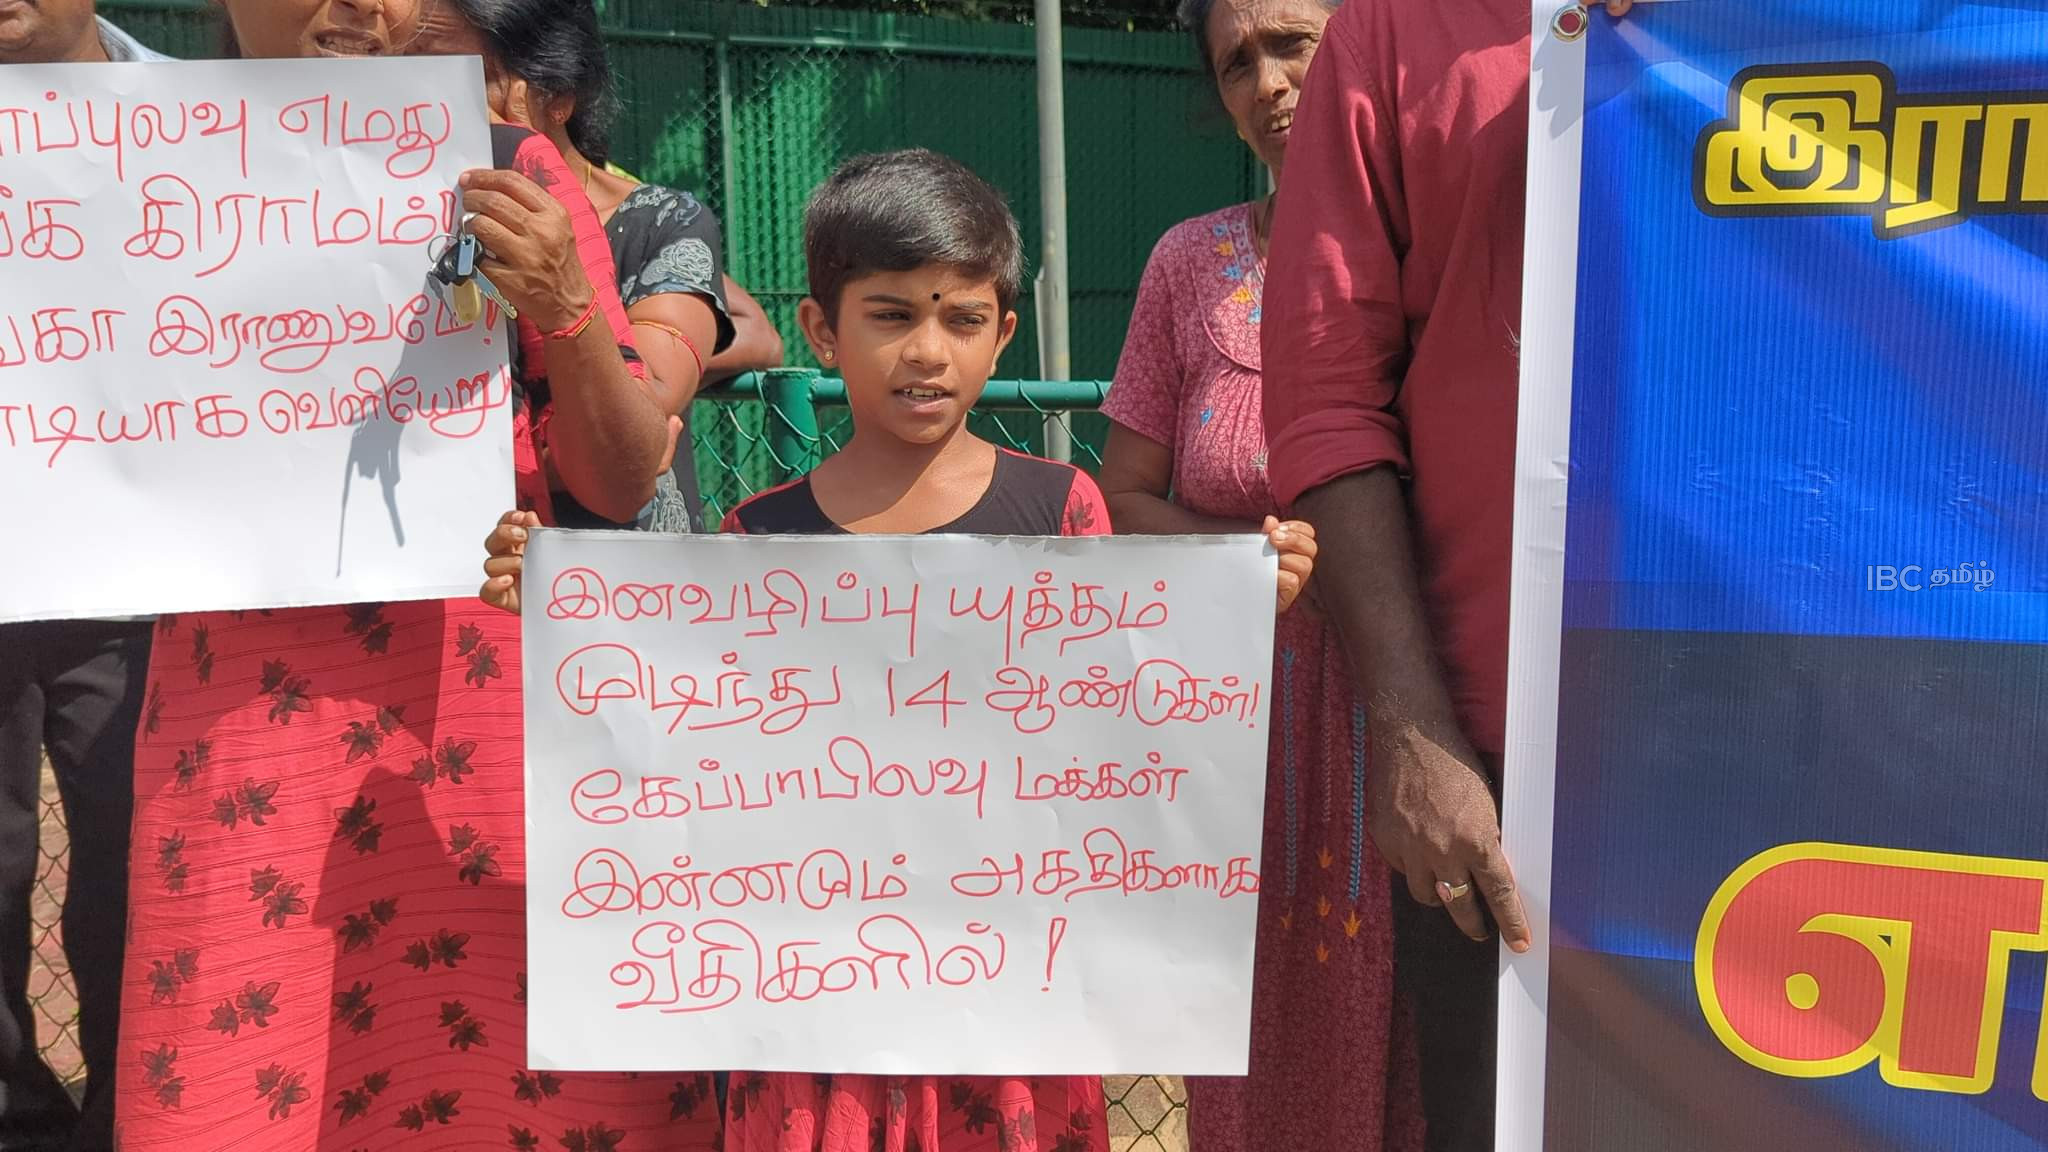 எமது
கிராமம்!
இராணுவமே!
வெளியேறு
இனவழிப்பு யுத்தம்
முடிந்து 14 ஆண்டுகள்!
கேப்பாபிலவு மக்கள்
இன்னமும் அகதிகளாக
வீதிகளில்!
IBC தமிழ்